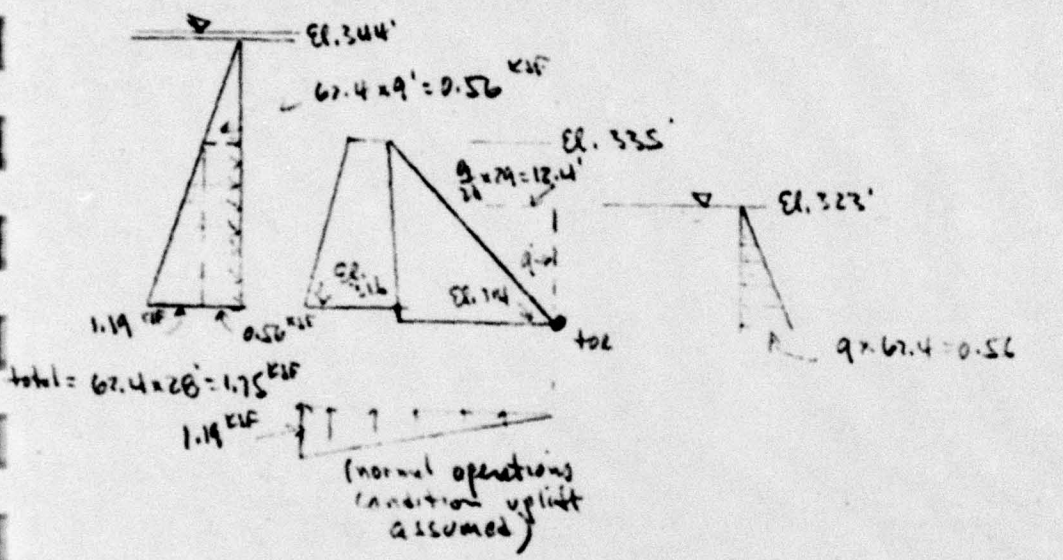 El. 344'
62.4 x 9' = 0.56 KSF
El. 335'
x 29 = 12.4'
El. 323'
El. 316
El. 314
1.19 KSF
0.56 KSF
toe
9 x 62.4 = 0.56
total = 62.4 x 28' = 1.75 KSF
1.19 KSF
(normal operations
condition uplift
assumed)